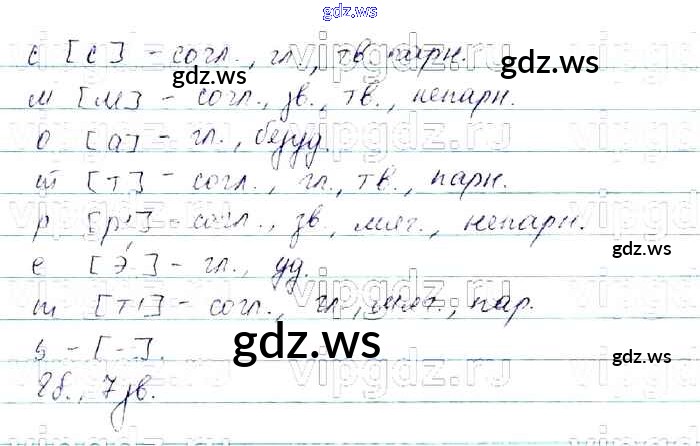 gdz.ws
с [с] - согл., гл., тв. парн.
м [м] - согл., зв., тв., непарн.
о [а] - гл., безуд.
т [т] - согл., гл., тв., парн.
р [р'] - согл., зв, мяг., непарн.
gdz.ws
е [э́] - гл., уд.
т [т'] - согл., гл., мяг., пар.
gdz.ws
gdz.ws
ь - [-].
8б., 7зв.
gdz.ws
gdz.ws